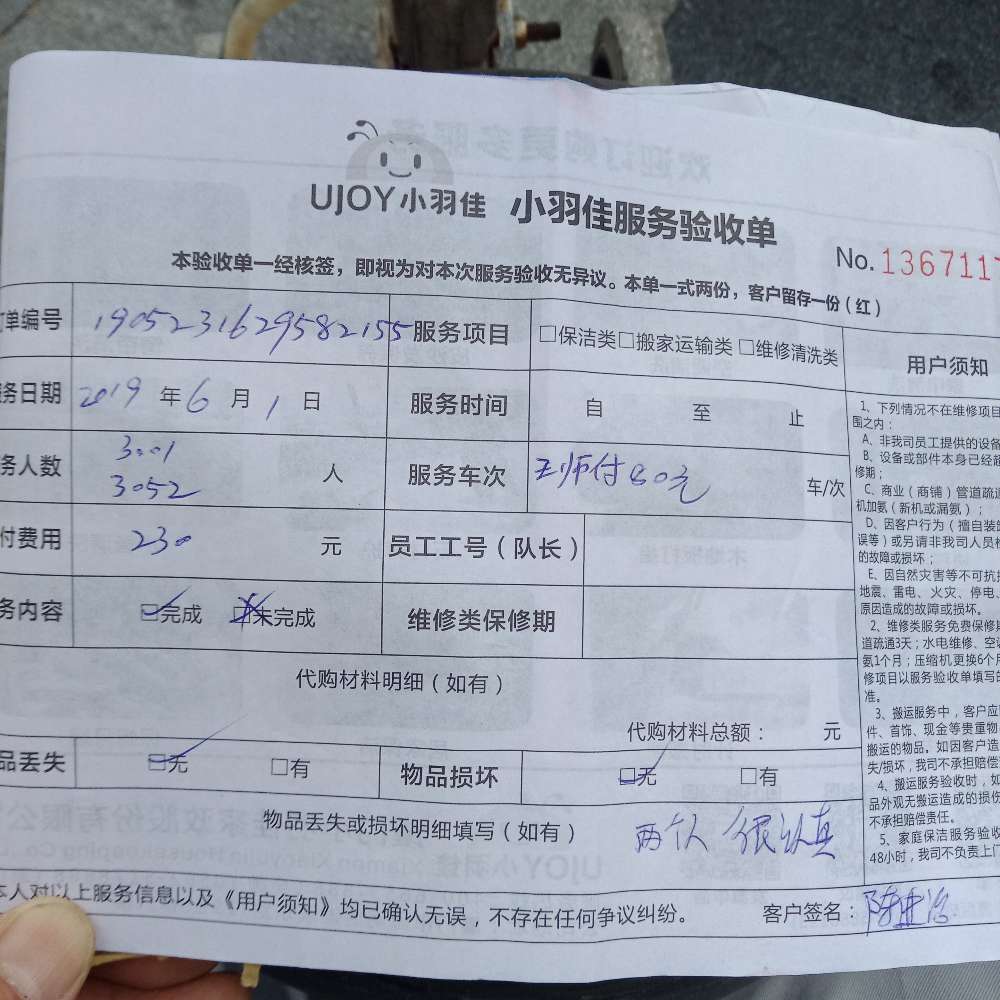 UJOY小羽佳 小羽佳服务验收单
No. 1367117
本验收单一经核签，即视为对本次服务验收无异议。本单一式两份，客户留存一份（红）
单编号 1905231629582155 服务项目 □保洁类□搬家运输类□维修清洗类
务日期 2019年6月1日 服务时间 自 至 止
务人数 3001 3052 人 服务车次 王师付80元 车/次
付费用 230 元 员工工号（队长）
务内容 □完成 □未完成 维修类保修期
代购材料明细（如有）
代购材料总额： 元
品丢失 □无 □有 物品损坏 □无 □有
物品丢失或损坏明细填写（如有） 两个人 很认真
本人对以上服务信息以及《用户须知》均已确认无误，不存在任何争议纠纷。 客户签名：
用户须知
1、下列情况不在维修项目
围之内：
A、非我司员工提供的设备
B、设备或部件本身已经超
修期；
C、商业（商铺）管道疏通
机加氨（新机或漏氨）；
D、因客户行为（擅自装卸
误等）或另请非我司人员检
的故障或损坏；
E、因自然灾害等不可抗拒
地震、雷电、火灾、停电、
原因造成的故障或损坏。
2、维修类服务免费保修期
道疏通3天；水电维修、空调
氨1个月；压缩机更换6个月
修项目以服务验收单填写的
准。
3、搬运服务中，客户应
件、首饰、现金等贵重物
搬运的物品。如因客户造
失/损坏，我司不承担赔偿
4、搬运服务验收时，如
品外观无搬运造成的损伤
不承担赔偿责任。
5、家庭保洁服务验收
48小时，我司不负责上门